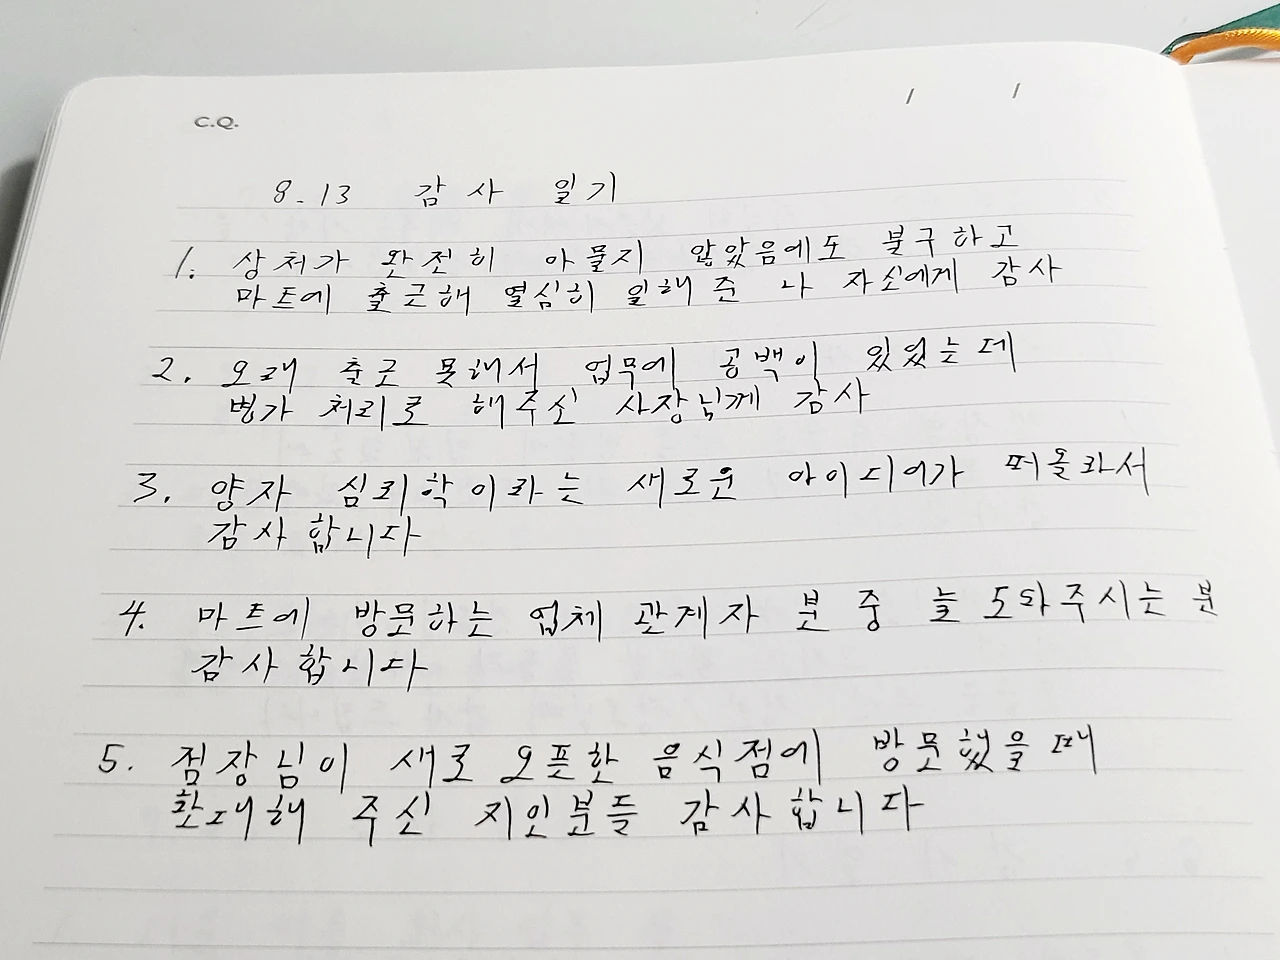 C.Q.
/ /
8.13 감사 일기
1. 상처가 완전히 아물지 않았음에도 불구하고
마트에 출근해 열심히 일해 준 나 자신에게 감사
2. 오래 출근 못해서 업무에 공백이 있었는데
병가 처리로 해주신 사장님께 감사
3. 양자 심리학이라는 새로운 아이디어가 떠올라서
감사합니다
4. 마트에 방문하는 업체 관계자 분 중 늘 도와주시는 분
감사합니다
5. 점장님이 새로 오픈한 음식점에 방문했을 때
환대해 주신 지인분들 감사합니다